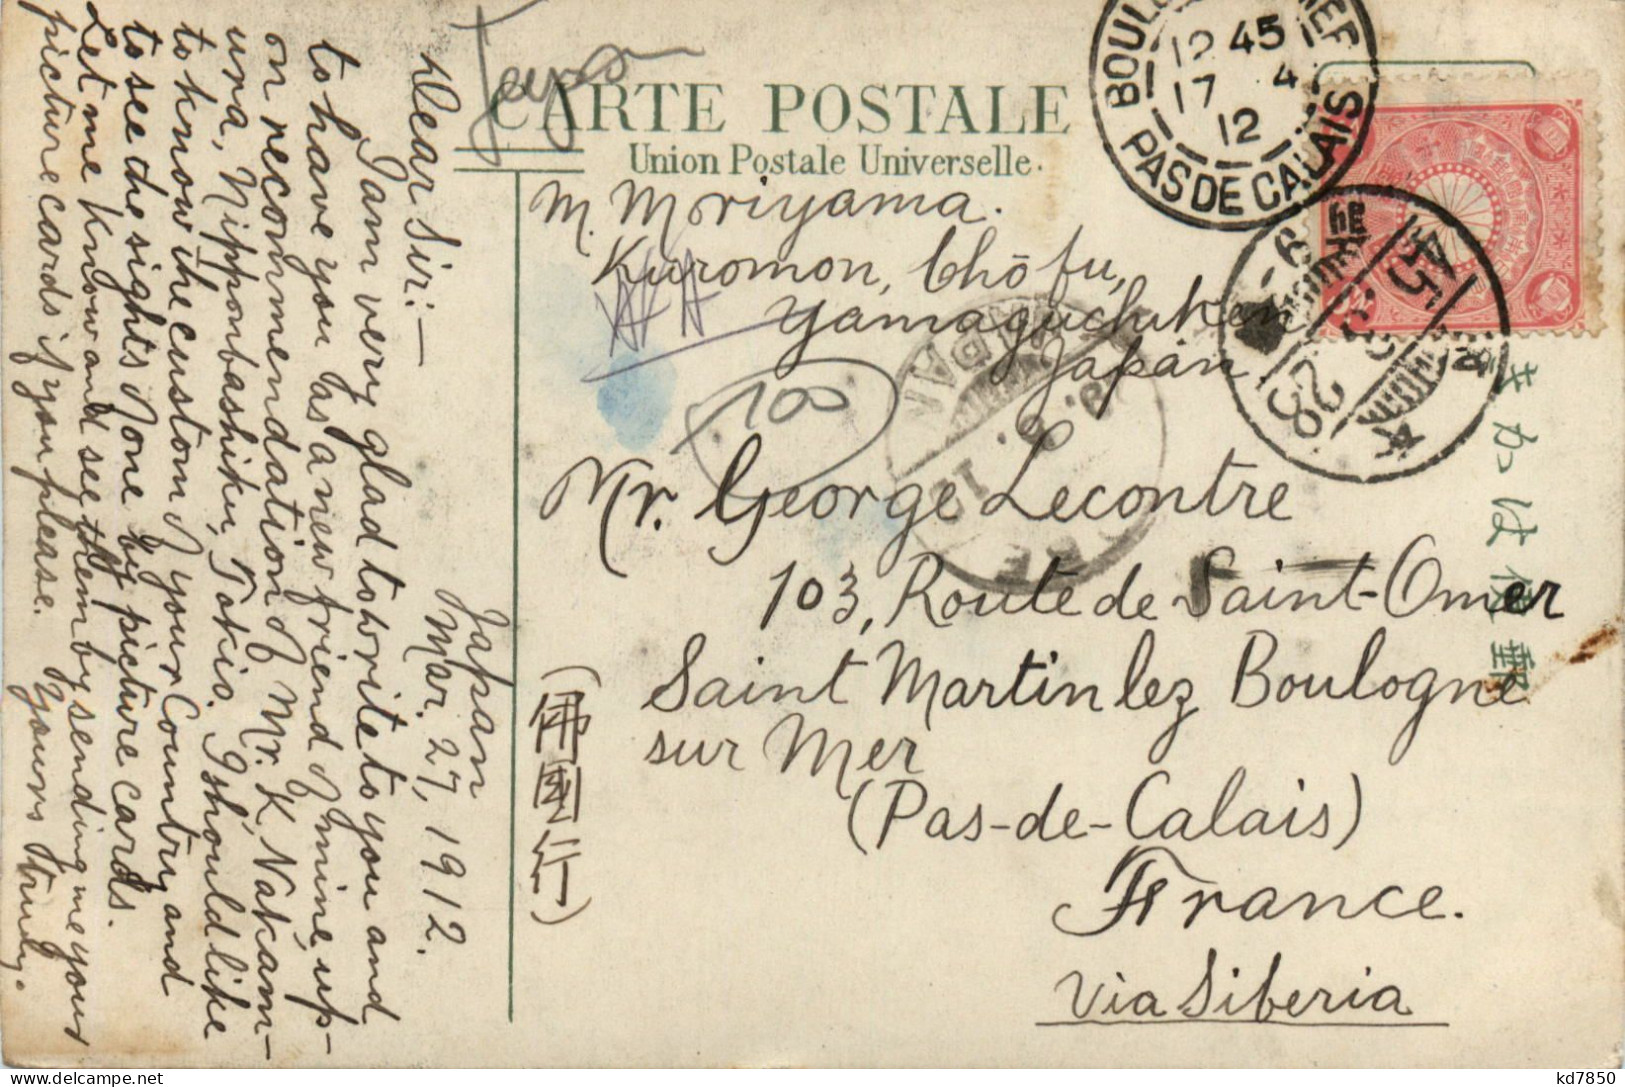 Japan
CARTE POSTALE
Union Postale Universelle.
M. Moriyama.
Kuromon, Chōfu,
Yamaguchi Ken
Japan
100
Mr. George Lecontre
103, Route de Saint-Omer
Saint Martin lez Boulogne
sur Mer
(Pas-de-Calais)
France.
via Siberia
(佛國行)
Japan
Mar. 27, 1912.
Dear Sir:—
I am very glad to write to you and
to have you as a new friend of mine, up-
on recommendation of Mr. K. Nakam-
ura, Nipponbashiku, Tokio. I should like
to know the custom of your Country and
to see the sights done by picture cards.
Let me know and see them by sending me your
picture cards if you please. Yours truly.
PAS DE CALAIS
12 45
17 4
12
きかは便郵
kd7850